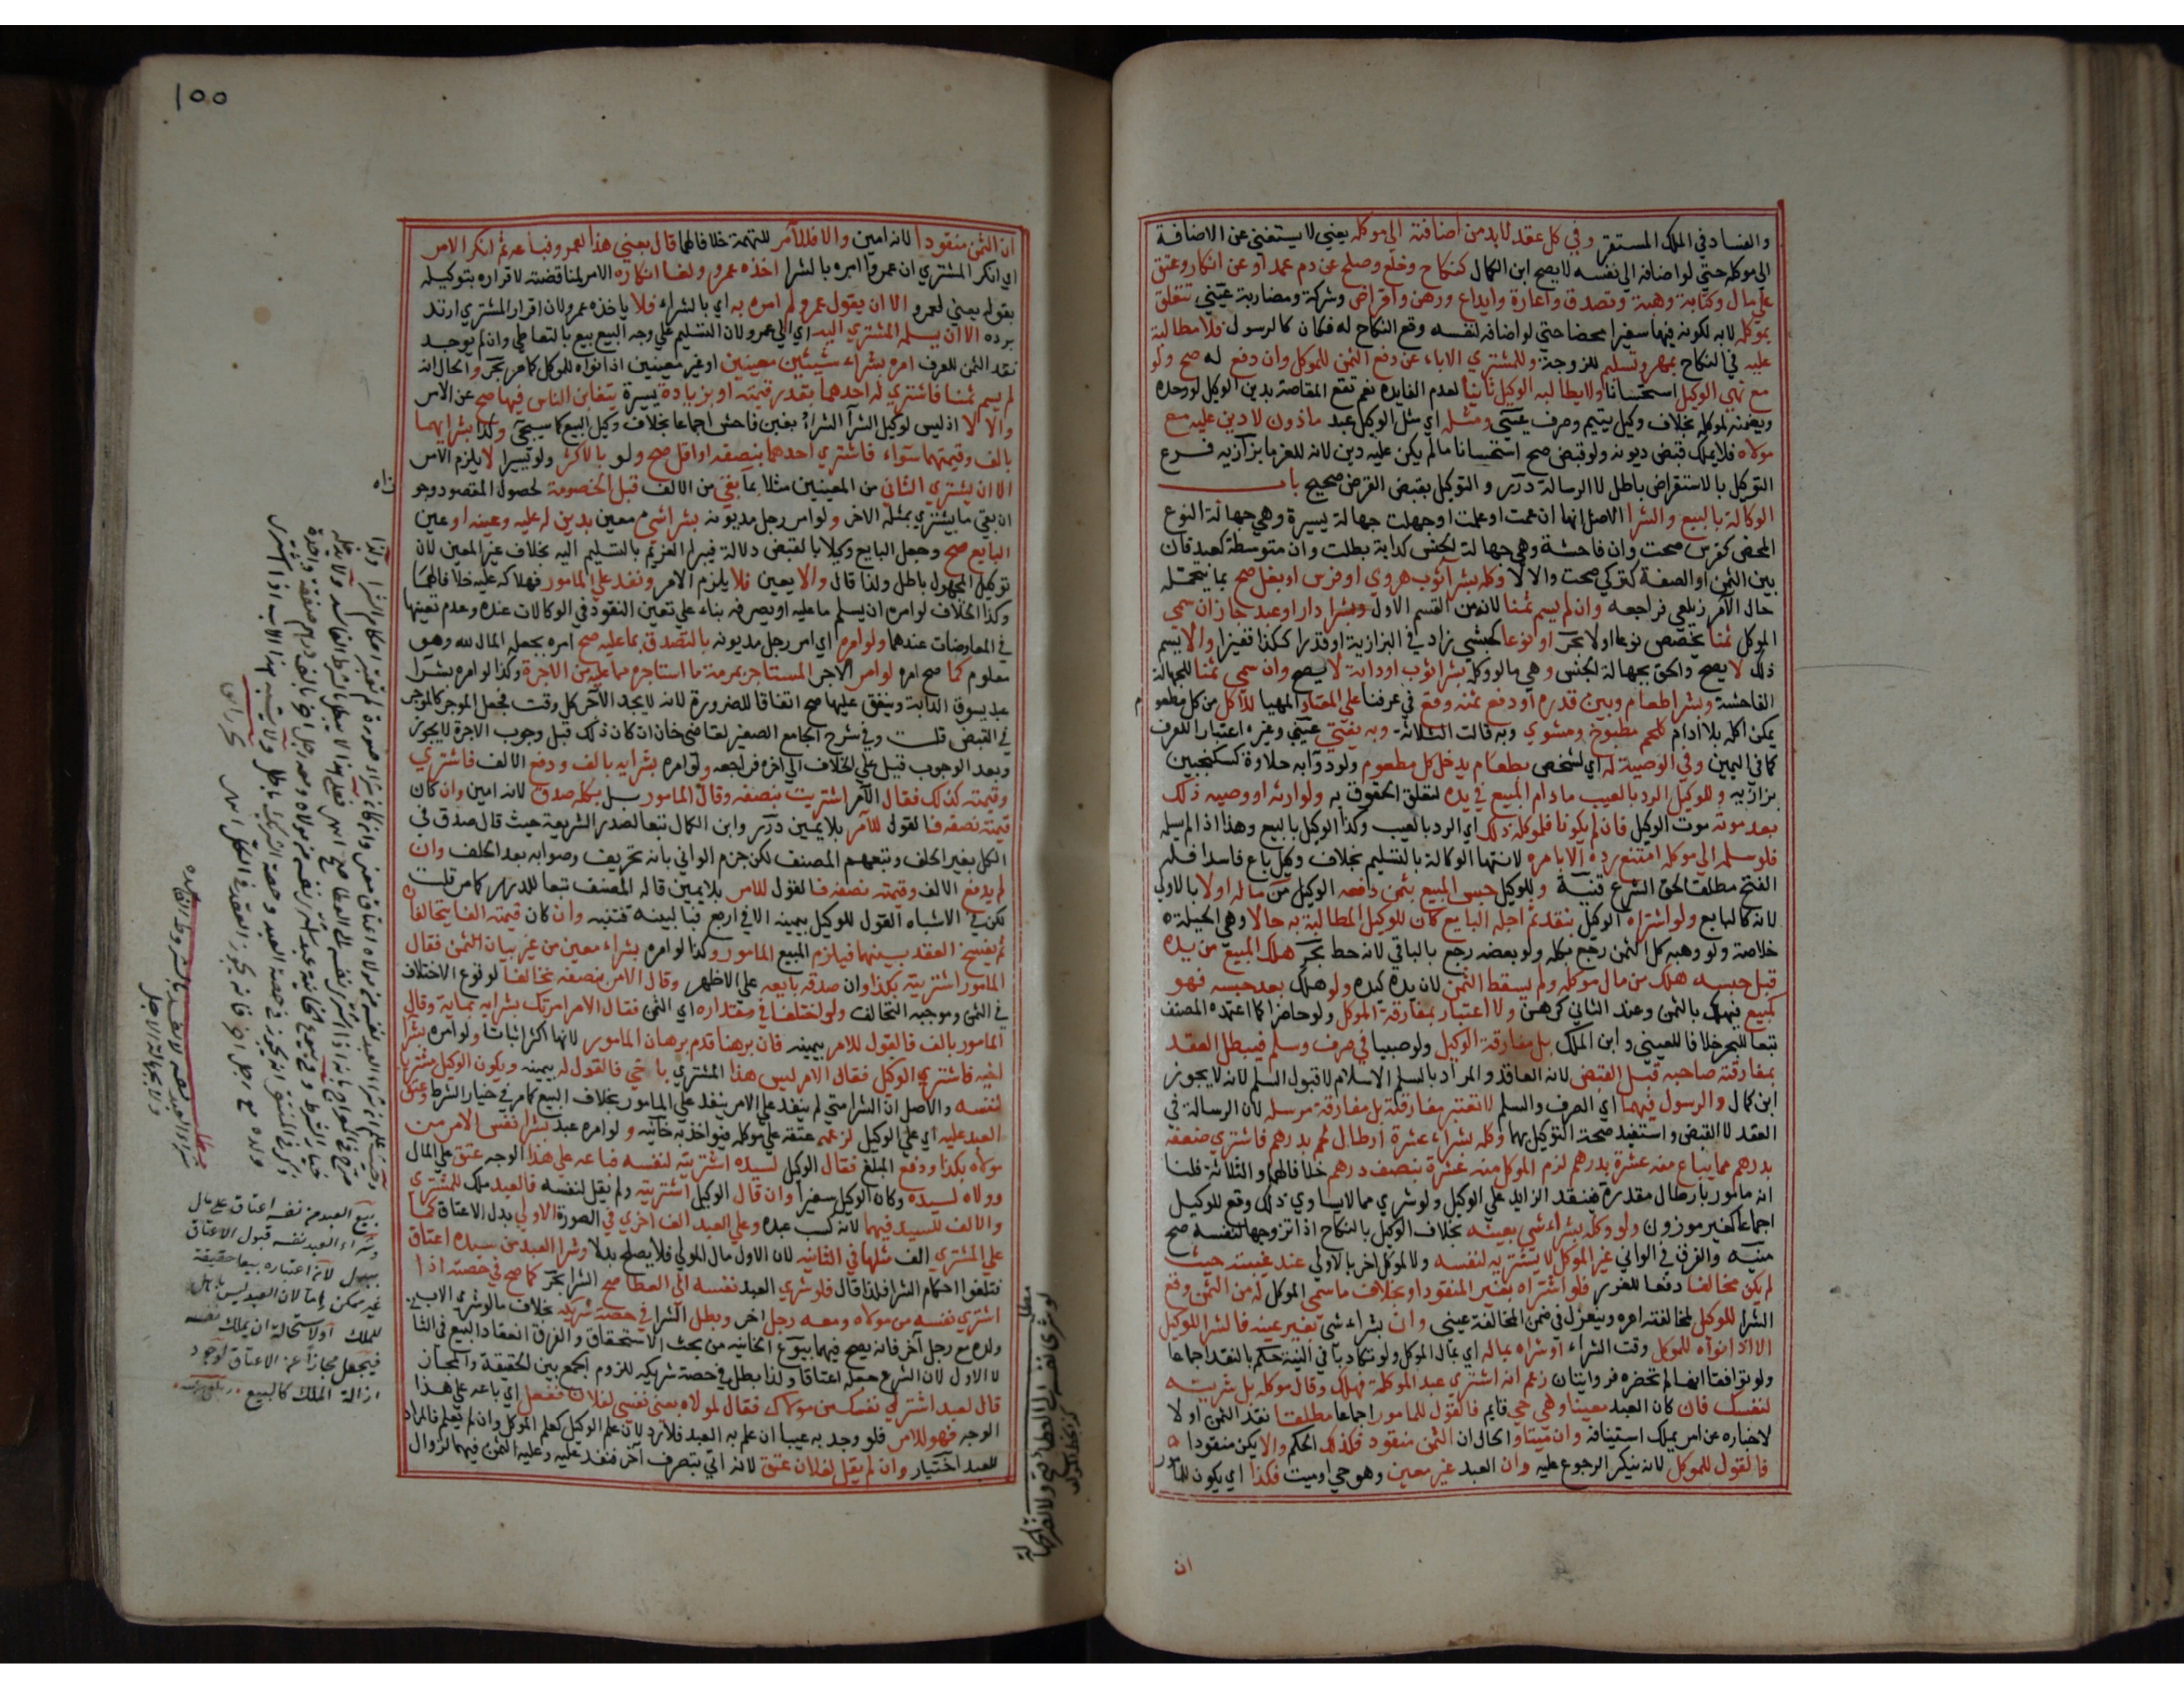 والفساد في الملك المستقر وفي كل عقد لابد من اضافته الي موكله يعني لا يستغني عن الاضافة
الي موكله حتي لو اضافه الي نفسه لا يصح ابن الكمال كنكاح وخلع وصلح عن دم عمد او عن انكار وعتق
علي مال وكتابة وهبة وتصدق واعارة وايداع ورهن واقراض وشركة ومضاربة عيني تتعلق
بموكله لا به لكونه فيها سفيرا محضا حتي لو اضافه لنفسه وقع النكاح له فكان كالرسول فلا مطالبة
عليه في النكاح بمهر وتسليم للزوجة وللمشتري الاباء عن دفع الثمن للموكل وان دفع له صح ولو
مع نهي الوكيل استحسانا ولا يطالبه الوكيل ثانيا لعدم الفايدة نعم تقع المقاصة بدين الوكيل لو وحده
ويضمنه لموكله بخلاف وكيل يتيم وصرف عيني ومثله اي مثل الوكيل عبد ماذون لا دين عليه مع
مولاه فلا يملك قبض ديونه ولو قبض صح استحسانا ما لم يكن عليه دين لانه للغرما بزازيه فرع
التوكيل بالاستقراض باطل لا الرسالة درر و التوكيل بقبض القرض صحيح باب
الوكالة بالبيع والشرا الاصل انها ان عمت او علمت او جهلت جهالة يسيرة وهي جهالة النوع
المحض كفرس صحت وان فاحشة وهي جهالة الجنس كدابة بطلت وان متوسطة كعبد فان
بين الثمن او الصفة كتركي صحت والا لا وكله بشرا ثوب هروي او فرس او بغل صح بما يتحمله
حال الآمر زيلعي فراجعه وان لم يسم ثمنا لانه من القسم الاول وبشرا دار او عبد جاز ان سمي
الموكل ثمنا يخصص نوعا اولا بحر او نوعا كحبشي زاد في البزازية او قدرا ككذا قفيزا والا يسم
ذلك لا يصح والحق بجهالة الجنس وهي ما لو وكله بشرا ثوب او دابة لا يصح وان سمي ثمنا للجهالة
الفاحشة وبشرا طعام وبين قدره او دفع ثمنه وقع في عرفنا علي المعتاد المهيا للاكل من كل مطعوم
يمكن اكله بلا ادام كلحم مطبوخ ومشوي وبه قالت الثلاثة وبه يفتي عيني وغيره اعتبارا للعرف
كما في اليمين وفي الوصية له اي لشخص بطعام يدخل كل مطعوم ولو دوآبه حلاوة كسكنجبين
بزازيه وللوكيل الرد بالعيب ما دام المبيع في يده لتعلق الحقوق به ولوارثه او وصيه ذلك
بعد موته موت الوكيل فان لم يكونا فلموكله ذلك اي الرد بالعيب وكذا الوكيل بالبيع وهذا اذا لم يسلمه
فلو سلمه الي موكله امتنع رده الا بامره لانتها الوكالة بالتسليم بخلاف وكيل باع فاسدا فله
الفتح مطلقا لحق الشرع قنية وللوكيل حبس المبيع بثمن دفعه الوكيل من ماله اولا بالاولي
لانه كالبايع ولو اشتراه الوكيل بنقد ثم اجله البايع كان للوكيل المطالبة به حالا وهي الحيلة
خلاصة ولو وهبه كل الثمن رجع بكله ولو بعضه رجع بالباقي لانه حط بحر هلك المبيع من يده
قبل حبسه هلك من مال موكله ولم يسقط الثمن لان يده كيده ولو هلك بعد حبسه فهو
كمبيع فيهلك بالثمن وعند الثاني كرهن ولا اعتبار بمفارقة الموكل ولو حاضرا كما اعتمده المصنف
تبعا للبحر خلافا للعيني و ابن الملك بل مفارقة الوكيل ولو صبيا في صرف وسلم فيبطل العقد
بمفارقته صاحبه قبل القبض لانه العاقد والمراد بالسلم الاسلام لا قبول السلم لانه لا يجوز
ابن كمال والرسول فيهما اي الصرف والسلم لا تعتبر مفارقته بل مفارقة مرسله لان الرسالة في
العقد لا القبض واستفيد صحة التوكيل بهما وكله بشراء عشرة ارطال لحم بدرهم فاشتري ضعفه
بدرهم مما يباع منه عشرة بدرهم لزم الموكل منه عشرة بنصف درهم خلافا لهما والثلاثة قلنا
انه مامور بارطال مقدرة فينفذ الزايد علي الوكيل ولو شري مما لا يساوي ذلك وقع للوكيل
اجماعا كغير موزون ولو وكله بشراء شي بعينه بخلاف الوكيل بالنكاح اذا تزوجها لنفسه صح
منيه والفرق في الواني غير الموكل لا يشتريه لنفسه ولا لموكل اخر بالاولي عند غيبته حيث
لم يكن مخالفا دفعا للغرر فلو اشتراه بغير المنقود او بخلاف ما سمي الموكل له من الثمن وقع
الشرا للوكيل لمخالفته امره وينعزل في ضمن المخالفة عيني وان بشراء شي بغير عينه فالشرا للوكيل
الا اذا نواه للموكل وقت الشراء او شراه بماله اي بمال الموكل ولو تكاذبا في النية حكم بالنقد اجماعا
ولو توافقا انها لم تحضره فروايتان زعم انه اشتري عبد الموكله فهلك وقال موكله بل شريته
لنفسك فان كان العبد معينا وهي حي قايم فالقول للمامور اجماعا مطلقا نقد الثمن او لا
لاخباره عن امر يملك استينافه وان ميتا والحال ان الثمن منقود فكذلك الحكم والا يكن منقودا
فالقول للموكل لانه ينكر الرجوع عليه وان العبد غير معين وهو حي او ميت فكذا اي يكون للمامور
ان
١٥٥
ان الثمن منقودا لانه امين والا فللآمر للتهمة خلافا لهما قال بعني هذا لعمرو فباعه ثم انكر الامر
اي انكر المشتري ان عمروا امره بالشرا اخذه عمرو ولغا انكاره الامر لمناقضته لاقراره بتوكيله
بقوله بعني لعمرو الا ان يقول عمرو لم امره به اي بالشراء فلا ياخذه عمرو لان اقرار المشتري ارتد
برده الا ان يسلمه المشتري اليه اي الي عمرو لان التسليم علي وجه البيع بيع بالتعاطي وان لم يوجد
نقد الثمن للعرف امره بشراء شيئين معينين او غير معينين اذا نواه للموكل كما مر بحر والحال انه
لم يسم ثمنا فاشتري له احدهما بقدر قيمته او بزيادة يسيرة يتغابن الناس فيها صح عن الامر
والا لا اذ ليس لوكيل الشرآ الشراء بغبن فاحش اجماعا بخلاف وكيل البيع كما سيجئ وكذا بشرايهما
بالف وقيمتهما سواء فاشتري احدهما بنصفه او اقل صح ولو بالاكثر ولو يسيرا لا يلزم الامر
الا ان يشتري الثاني من المعينين مثلا بما بقي من الالف قبل الخصومة لحصول المقصود وجو
ان بقي ما يشتري بمثله الاخر ولو امر رجل مديونه بشرا شي معين بدين له عليه وعينه او عين
البايع صح وجعل البايع وكيلا بالقبض دلالة فيبرا الغريم بالتسليم اليه بخلاف غير المعين لان
توكيل المجهول باطل ولذا قال والا يعين فلا يلزم الامر ونفذ علي المامور فهلاكه عليه خلافا لهما
وكذا الخلاف لو امره ان يسلم ما عليه او يصرفه بناء علي تعين النقود في الوكالات عنده وعدم تعينها
في المعاوضات عندهما ولو امره اي امر رجل مديونه بالتصدق بما عليه صح امره بجعله المال لله وهو
معلوم كما صح امره لو امر الاجر المستاجر بمرمة ما استاجره مما عليه من الاجرة وكذا لو امره بشرا
عبد يسوق الدابة وينفق عليها صح اتفاقا للضرورة لانه لا يجد الآجر كل وقت فجعل الموجر كالموجر
في القبض قلت وفي شرح الجامع الصغير لقاضي خان ان كان ذلك قبل وجوب الاجرة لا يجوز
وبعد الوجوب قيل علي الخلاف الي اخره فراجعه ولو امره بشرايه بالف ودفع الالف فاشتري
وقيمته كذلك فقال الآمر اشتريت بنصفه وقال المامور بل بكله صدق لانه امين وان كان
قيمته نصفه فالقول للآمر بلا يمين درر وابن الكمال تبعا لصدر الشريعة حيث قال صدق في
الكل بغير الحلف وتبعهم المصنف لكن جزم الواني بانه تحريف وصوابه بعد الحلف وان
لم يدفع الالف وقيمته نصفه فالقول للامر بلا يمين قاله المصنف تبعا للدرر كما مر قلت
لكن في الاشباه القول للوكيل بيمينه الا في اربع فبالبينة فتنبه وان كان قيمته الفا يتحالفان
ثم يفسخ العقد بينهما فيلزم المبيع المامور وكذا لو امره بشراء معين من غير بيان الثمن فقال
المامور اشتريته بكذا وان صدقه بايعه علي الاظهر وقال الامر بنصفه تحالفا لوقوع الاختلاف
في الثمن وموجبه التحالف ولو اختلفا في مقداره اي الثمن فقال الامر امرتك بشرايه بمايه وقال
المامور بالف فالقول للامر بيمينه فان برهنا قدم برهان المامور لانها اكثر اثباتا ولو امره بشرا
اخيه فاشتري الوكيل فقال الامر ليس هذا المشتري باخي فالقول له بيمينه ويكون الوكيل مشتريا
لنفسه والاصل ان الشرا متي لم ينفذ علي الامر ينفذ علي المامور بخلاف البيع كما مر في خيار الشرط وعتق
العبد عليه اي علي الوكيل لزعمه عتقه علي موكله فيواخذ به خانيه ولو امره عبد بشرا نفس الامر من
مولاه بكذا ودفع المبلغ فقال الوكيل لسيده اشتريته لنفسه فباعه علي هذا الوجه عتق علي المال
وولاه لسيده وكان الوكيل سفيرا وان قال الوكيل اشتريته ولم يقل لنفسه فالعبد ملك للمشتري
والالف للسيد فيهما لانه كسب عبده وعلي العبد الف اخري في الصورة الاولي بدل الاعتاق كما
علي المشتري الف مثلها في الثانيه لان الاول مال المولي فلا يصلح بدلا وشرا العبد من سيده اعتاق
فتلغوا احكام الشرا فلذا قال فلو شري العبد نفسه الي العطا صح الشرا بحر كما صح في حصته اذا
اشتري نفسه من مولاه ومعه رجل اخر وبطل الشرا في حصة شريكه بخلاف ما لو شري الاب
ولده مع رجل آخر فانه يصح فيهما بيوع الخانيه من بحث الاستحقاق والفرق انعقاد البيع في الثا
لا الاول لان الشرع جعله اعتاقا ولذا بطل في حصة شريكه للزوم الجمع بين الحقيقة والمجاز
قال لعبد اشتر لي نفسك من مولاك فقال لمولاه بعني نفسي لفلان ففعل اي باعه علي هذا
الوجه فهو للامر فلو وجد به عيبا ان علم به العبد فلا رد لان علم الوكيل كعلم الموكل وان لم يعلم فالمراد
للعبد اختيار وان لم يقل لفلان عتق لانه اتي بتصرف آخر فنفذ عليه وعليه الثمن فيهما لزوال
بيع العبد من نفسه اعتاق علي مال
وشراء العبد نفسه قبول الاعتاق
ببدل لانه اعتباره بيعا حقيقة
غير ممكن اما لان العبد ليس باهل
للملك او لاستحالة ان يملك نفسه
فيجعل مجازا عن الاعتاق لوجود
ازالة الملك كالبيع